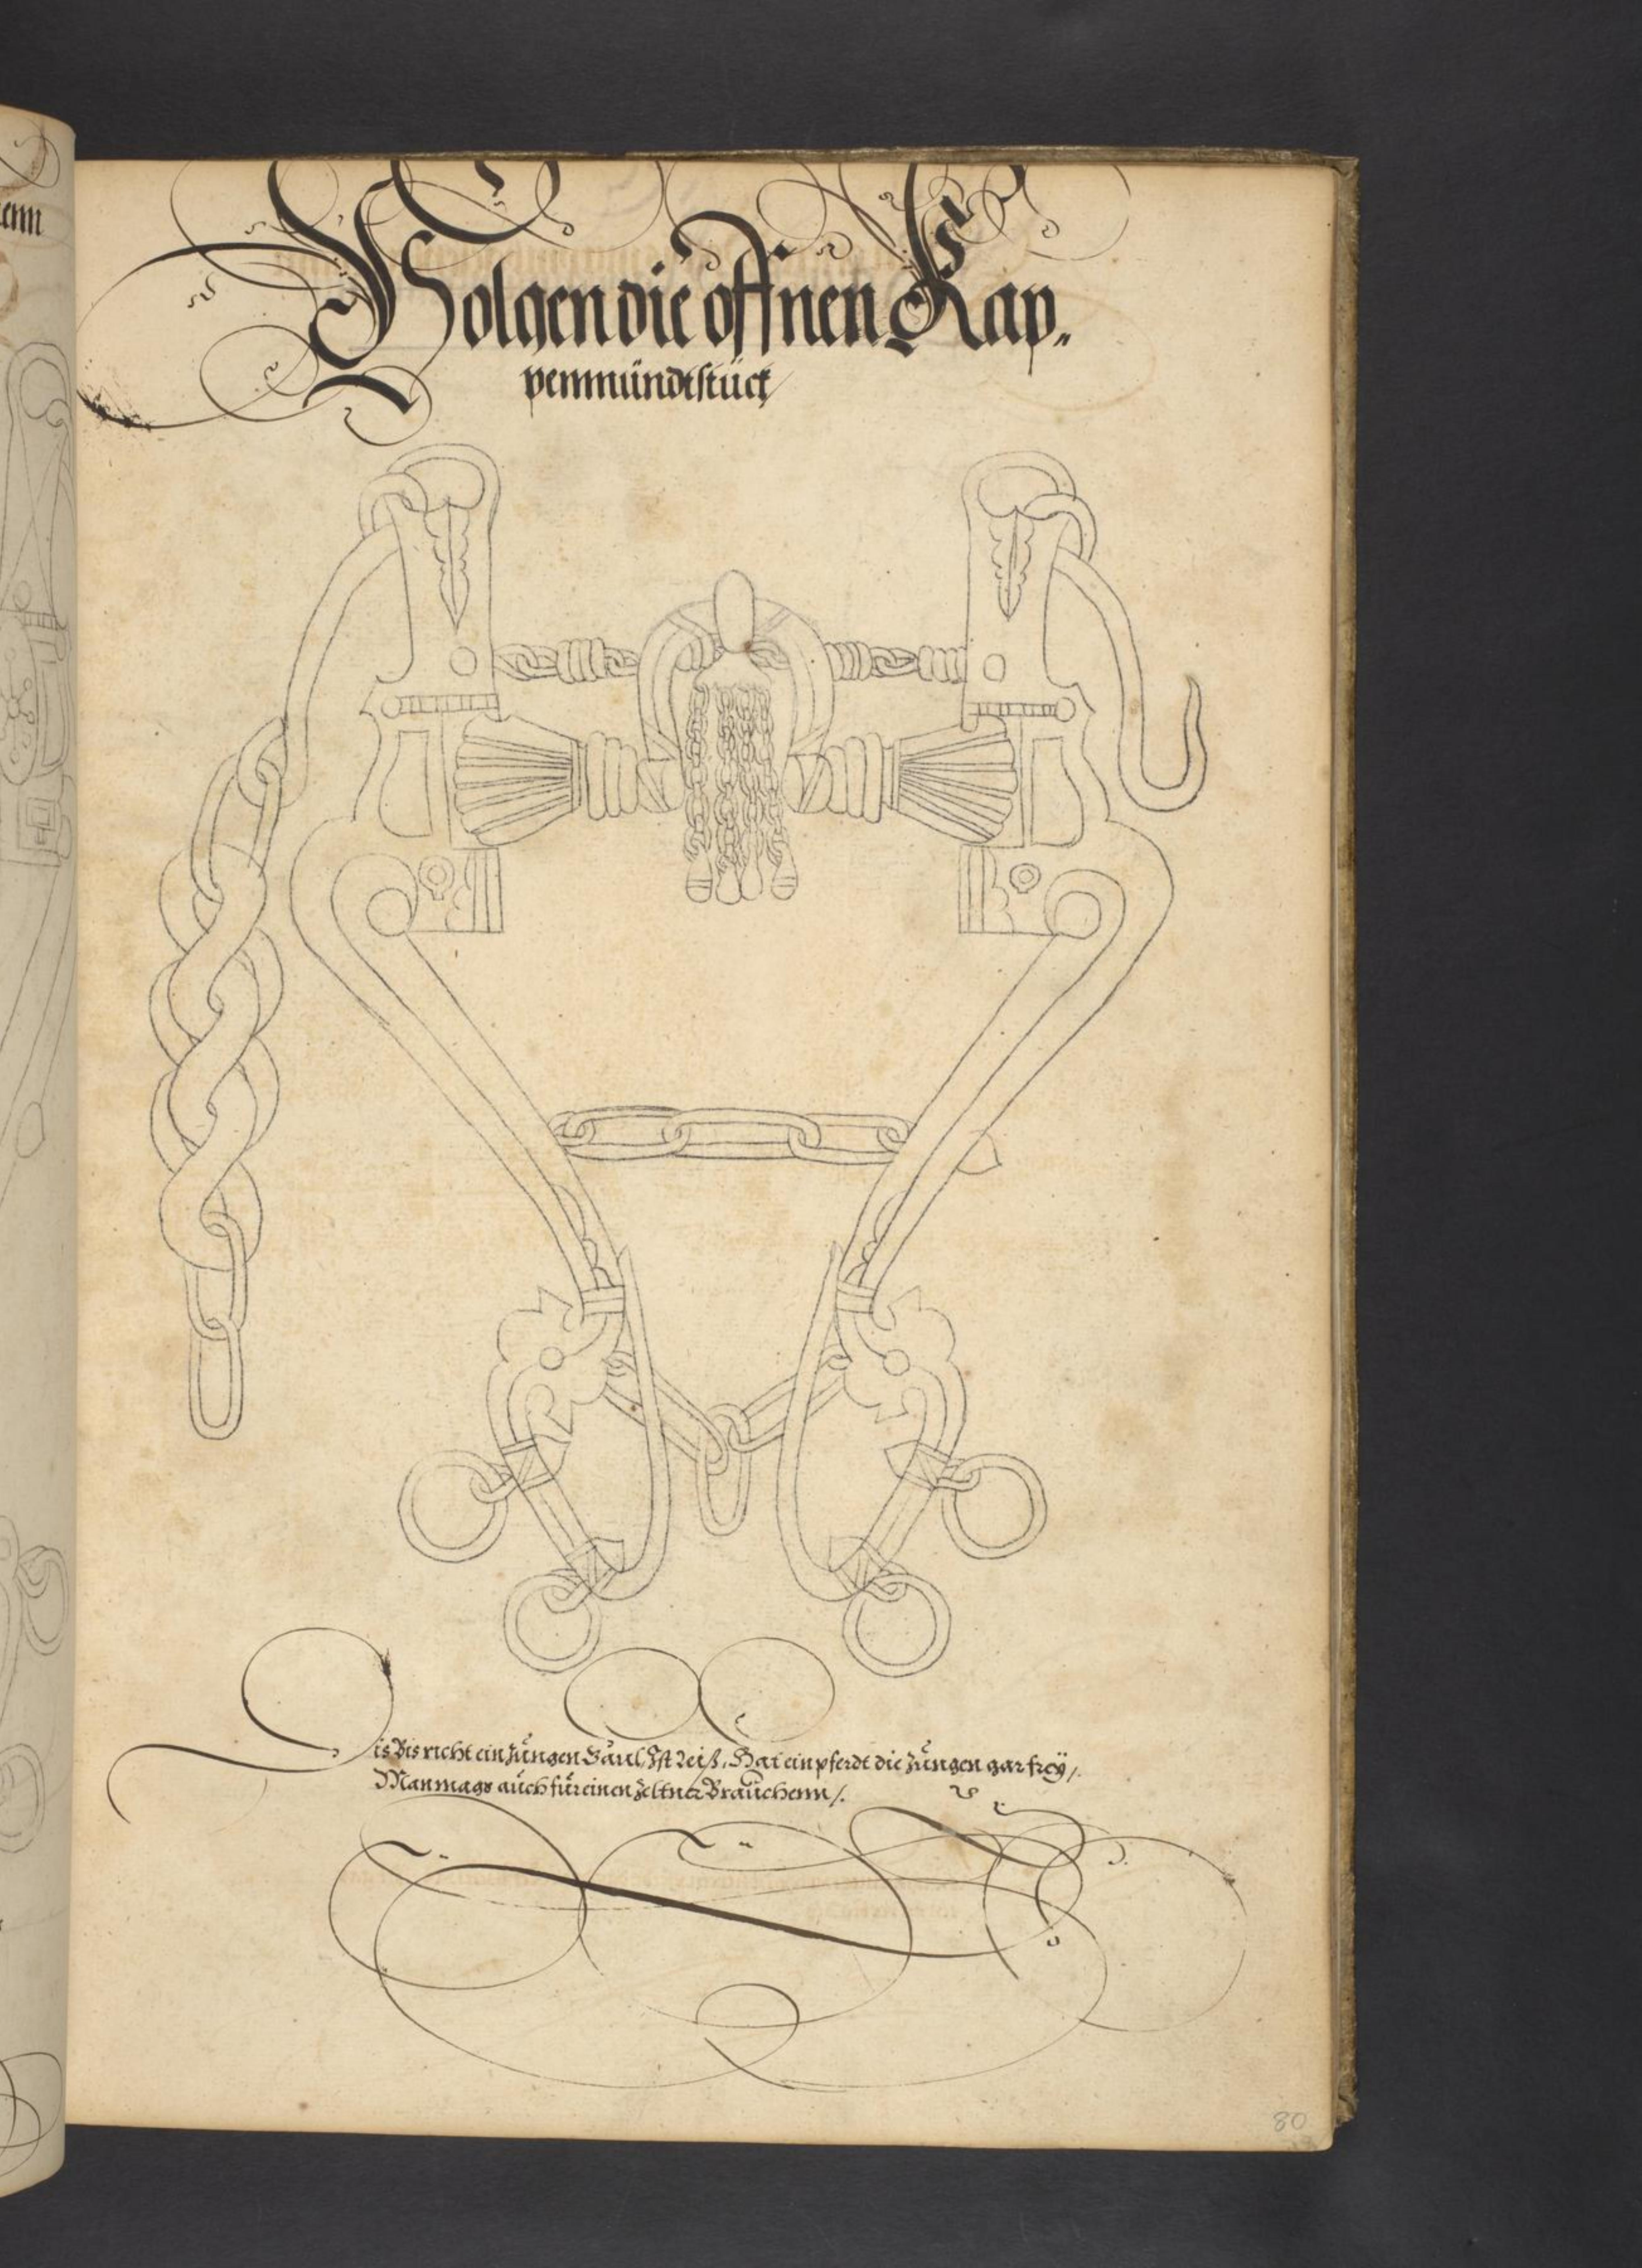 enn
Volgen die offnen Kap„
penmündtstück/
Dis Bis richt ein Jüngen Gaul, Ist Reiß, Hat ein pferdt die Züngen gar frey/.
Man mags aüch für einen Zeltner Braüchenn/.
80